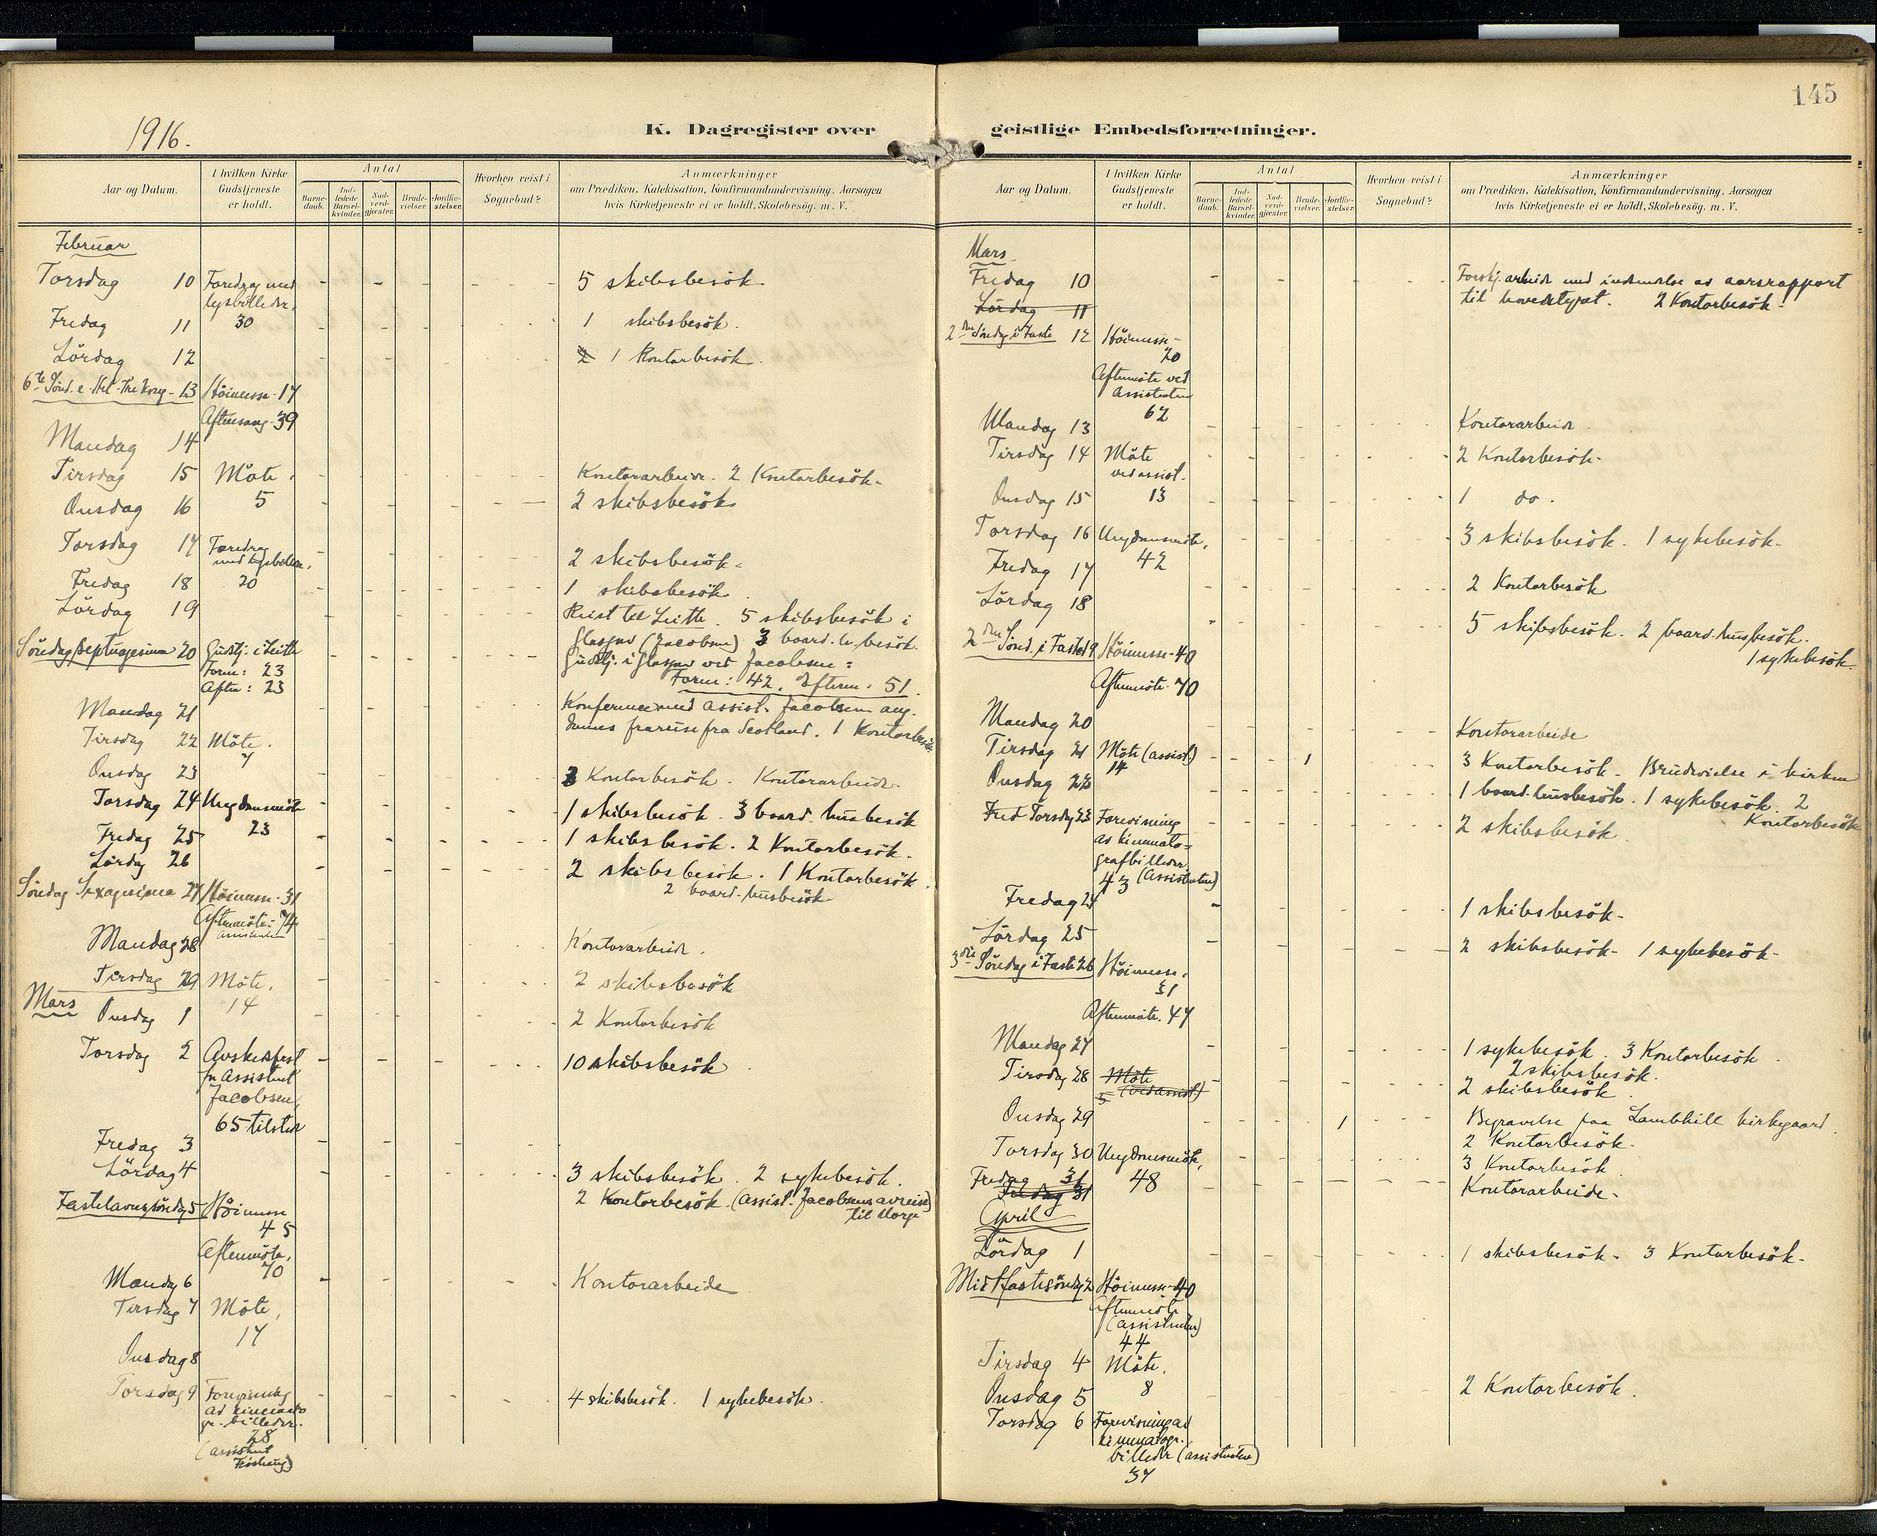 1916.
K. Dagregister over
Aar og Datum.
I hvilken Kirke Gudstjeneste er holdt.
Antal
Barnedaab.
Indledede Barselkvinder.
Nadverdgjæster.
Brudevielser.
Jordfæstelser.
Hvorhen reist i Sognebud?
Anmærkninger
om Prædiken, Katekisation, Konfirmandundervisning, Aarsagen
hvis Kirketjeneste ei er holdt, Skolebesög. m. V.
Februar
Torsdag 10 Foredrag med 5 skibsbesök.
lysbilleder.
Fredag 11 30 1 skibsbesök.
Lördag 12 1 Kontorbesök.
6te Sönd. e. Hel. Tre Kong. 13 Höimesse - 17
Aftensang - 39
Mandag 14
Tirsdag 15 Möte. Kontorarbeide. 2 Kontorbesök.
Onsdag 16 5 2 skibsbesök
Torsdag 17 Foredrag 2 skibsbesök.
med lysbilleder.
Fredag 18 20 1 skibsbesök.
Lördag 19 Reist til Leith. 5 skibsbesök i
Glasgow (Jacobsen) 3 board. h. besök.
Söndag Septuagesima 20 Gudtj. i Leith Gudtj. i Glasgow ved Jacobsen:
Form: 23 Form: 42. Efterm. 51.
Aften: 23
Mandag 21 Konference med assist. Jacobsen ang.
Tirsdag 22 Möte. dennes frareise fra Scotland. 1 Kontorbesök.
7
Onsdag 23 3 Kontorbesök. Kontorarbeide.
Torsdag 24 Ungdomsmöte 1 skibsbesök. 3 board. husbesök
23
Fredag 25 1 skibsbesök. 2 Kontorbesök.
Lördag 26 2 skibsbesök. 1 Kontorbesök.
2 board-husbesök
Söndag Sexagesima 27 Höimesse - 31
Aftenmöte - 74
Assistenten
Mandag 28 Kontorarbeide.
Tirsdag 29 Möte. 2 skibsbesök
14
Mars
Onsdag 1 2 Kontorbesök
Torsdag 2 Avskedsfest 10 skibsbesök
for Assistent
Jacobsen,
65 tilsted
Fredag 3
Lördag 4 3 skibsbesök. 2 sykebesök.
Fastelavnssöndag 5 Höimesse 2 Kontorbesök. (Assist. Jacobsens avreise)
45 til Norge
Aftenmöte.
70
Mandag 6 Kontorarbeide
Tirsdag 7 Möte,
17
Onsdag 8
Torsdag 9 Forevisning 4 skibsbesök. 1 sykebesök.
av kinemato
gr. billeder.
28
(assistent

145
geistlige Embedsforretninger.
Aar og Datum.
I hvilken Kirke Gudstjeneste er holdt.
Antal
Barnedaab.
Indledede Barselkvinder.
Nadverdgjæster.
Brudevielser.
Jordfæstelser.
Hvorhen reist i Sognebud?
Anmærkninger
om Prædiken, Katekisation, Konfirmandundervisning, Aarsagen
hvis Kirketjeneste ei er holdt, Skolebesög. m. V.
Mars.
Fredag 10 Forskj. arbeide med indsendelse av aarsrapport
Lördag 11 til hovedstyret. 2 Kontorbesök.
2den Söndag i Faste 12 Höimesse -
20
Aftenmöte ved
Assistenten
62
Mandag 13 Kontorarbeide.
Tirsdag 14 Möte 2 Kontorbesök.
ved assist.
Onsdag 15 13 1 do.
Torsdag 16 Ungdomsmöte, 3 skibsbesök. 1 sykebesök.
42
Fredag 17 2 Kontorbesök
Lördag 18 5 skibsbesök. 2 board. husbesök.
1 sykebesök.
2den Sönd. i Faste 19 Höimesse - 40
Aftenmöte - 70
Mandag 20 Kontorarbeide
Tirsdag 21 Möte (assist) 1 3 Kontorbesök. Brudevielse i kirken
14
Onsdag 22 1 board-husbesök. 1 sykebesök. 2
Kontorbesök
Fred Torsdag 23 Forevisning 2 skibsbesök.
av kinemato-
grafbilleder.
43 (Assistenten)
Fredag 24 1 skibsbesök.
Lördag 25 2 skibsbesök. 1 sykebesök.
3die Söndag i Faste 26 Höimesse.
31
Aftenmöte. 47
Mandag 27 1 sykebesök. 3 Kontorbesök.
2 skibsbesök.
Tirsdag 28 Möte 2 skibsbesök.
5 (ved assist)
Onsdag 29 1 Begravelse paa Lambhill kirkegaard.
2 Kontorbesök.
Torsdag 30 Ungdomsmöte, 3 Kontorbesök.
Fredag 31 48 Kontorarbeide.
Fredag 31
April
Lördag 1 1 skibsbesök. 3 Kontorbesök.
Midtfastesöndag 2 Höimesse - 40
Aftenmöte
(assistenten)
44
Tirsdag 4 Möte.
Onsdag 5 8 2 Kontorbesök.
Torsdag 6 Forevisning av
kinematogr.
billeder (assistenten)
37